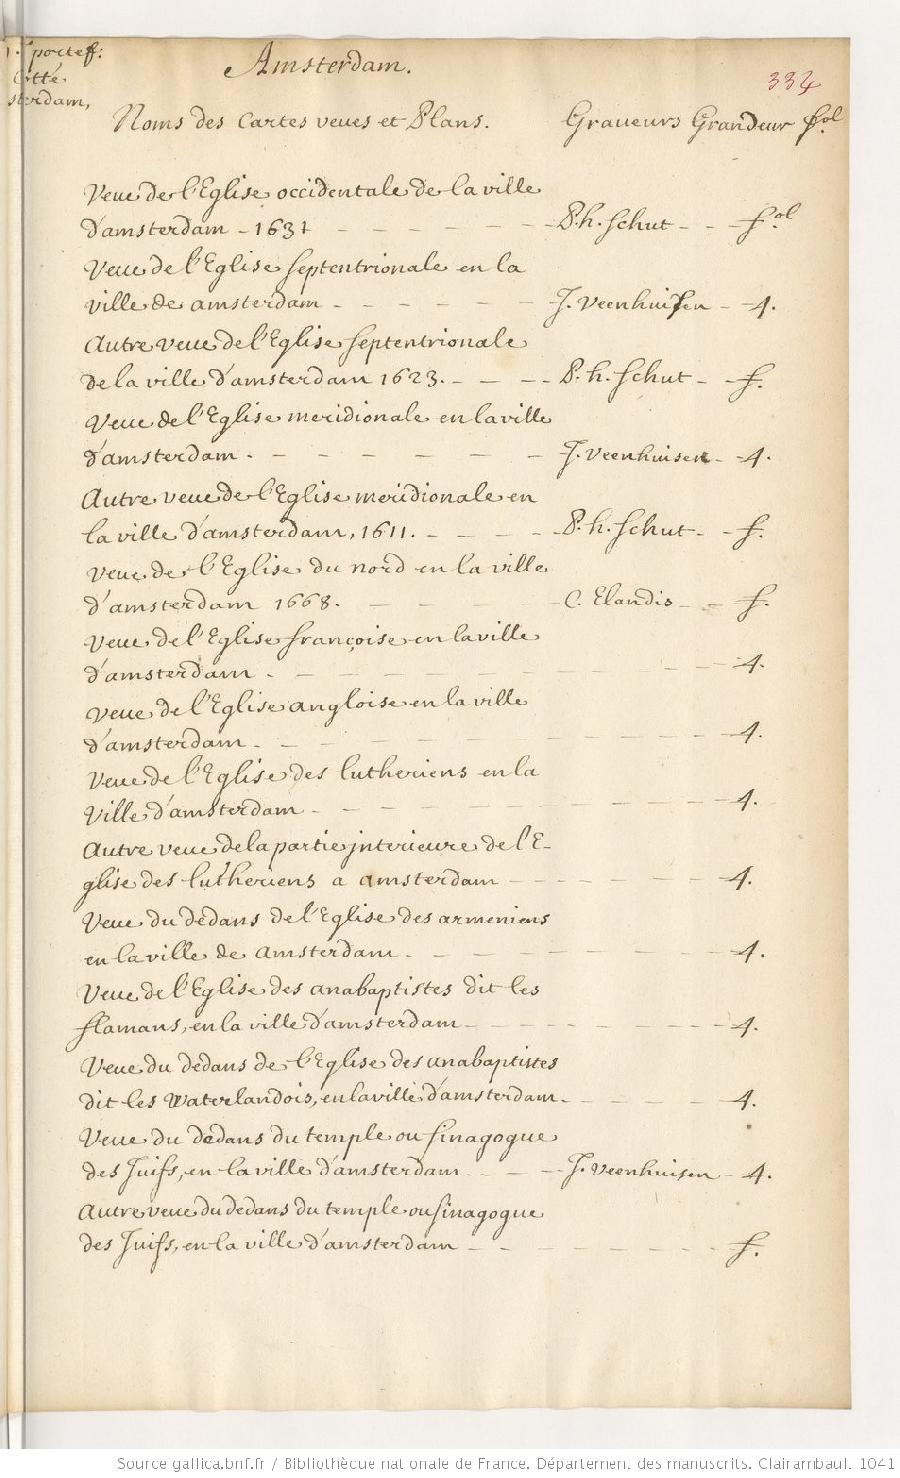 portef.
cotté
sterdam,
Amsterdam.
334
Noms des Cartes veues et Plans. Graveurs Grandeur fol
Veue de l'Eglise occidentale de la ville
d'amsterdam - 1631 - - - - - - P. h. Schut - - fol.
Veue de l'Eglise septentrionale en la
ville de amsterdam - - - - - J. Veenhuisen - 4.
Autre veue de l'Eglise septentrionale
de la ville d'amsterdam 1623. - - - P. h. Schut - f.
Veue de l'Eglise meridionale en la ville
d'amsterdam - - - - - - - J. Veenhuisen - 4.
Autre veue de l'Eglise meridionale en
la ville d'amsterdam, 1611. - - - - P. h. Schut - f.
Veue de l'Eglise du nord en la ville
d'amsterdam 1668. - - - - C. Elandis - - f.
Veue de l'Eglise françoise en la ville
d'amsterdam - - - - - - - - - 4.
Veue de l'Eglise angloise en la ville
d'amsterdam - - - - - - - - - 4.
Veue de l'Eglise des lutheriens en la
Ville d'amsterdam - - - - - - - - 4.
Autre veue de la partie jnterieure de l'E-
glise des lutheriens a amsterdam - - - - - 4.
Veue du dedans de l'Eglise des armeniens
en la ville de amsterdam - - - - - - - 4.
Veue de l'Eglise des anabaptistes dit les
flamans, en la ville d'amsterdam - - - - - - 4.
Veue du dedans de l'Eglise des anabaptistes
dit les Waterlandois, en la ville d'amsterdam - - - - 4.
Veue du dedans du temple ou sinagogue
des Juifs, en la ville d'amsterdam - - - J. Veenhuisen - 4.
Autre veue du dedans du temple ou sinagogue
des Juifs, en la ville d'amsterdam - - - - - - f.
Source gallica.bnf.fr / Bibliothèque nationale de France. Département des manuscrits. Clairambault 1041